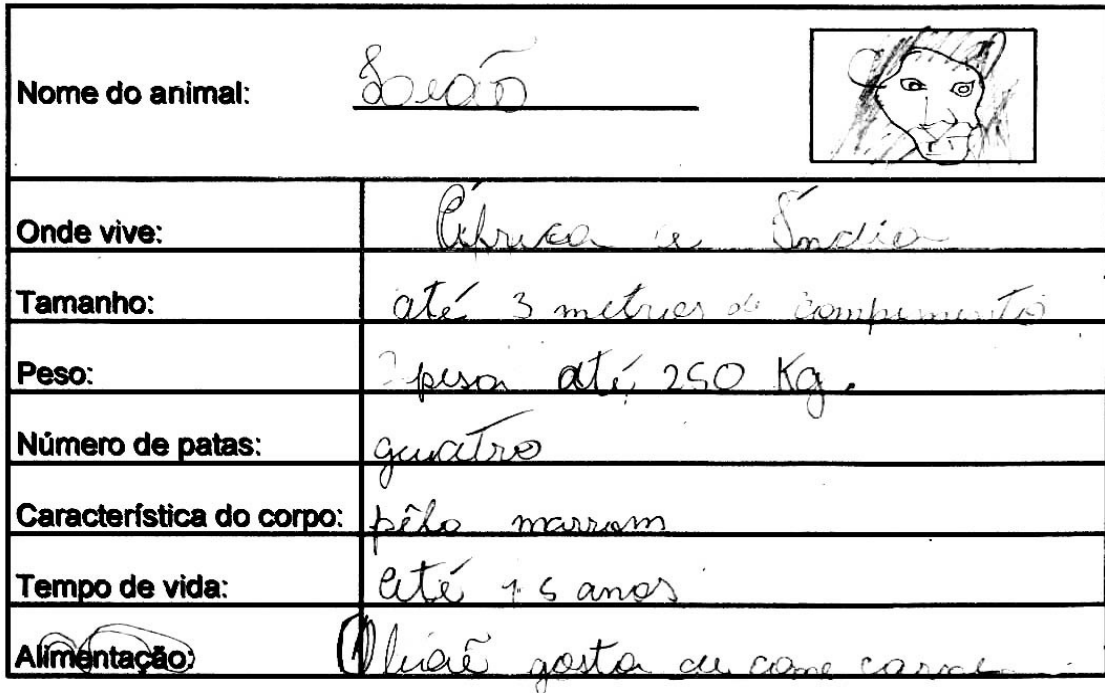 Nome do animal: Leão
Onde vive: África e Índia
Tamanho: até 3 metros de compimento
Peso: pesa até 250 Kg.
Número de patas: quatro
Característica do corpo: pêlo marrom
Tempo de vida: até 15 anos
Alimentação: O gosta de come carne